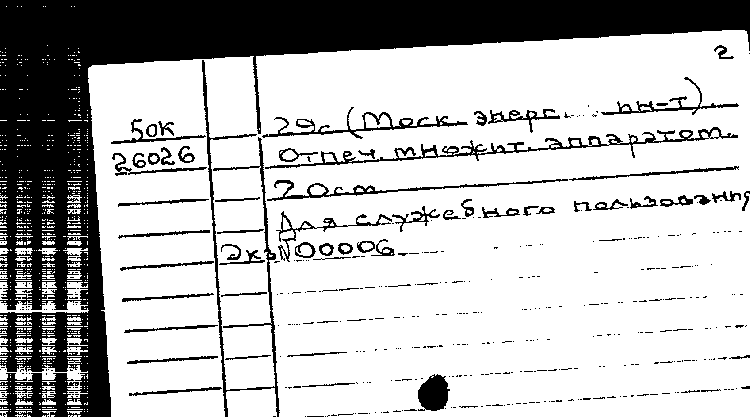 2
50к 29с (Моск. энерг. ин-т).
26026 Отпеч. множит. аппаратом.
20см
Для служебного пользования
Экз N00006.